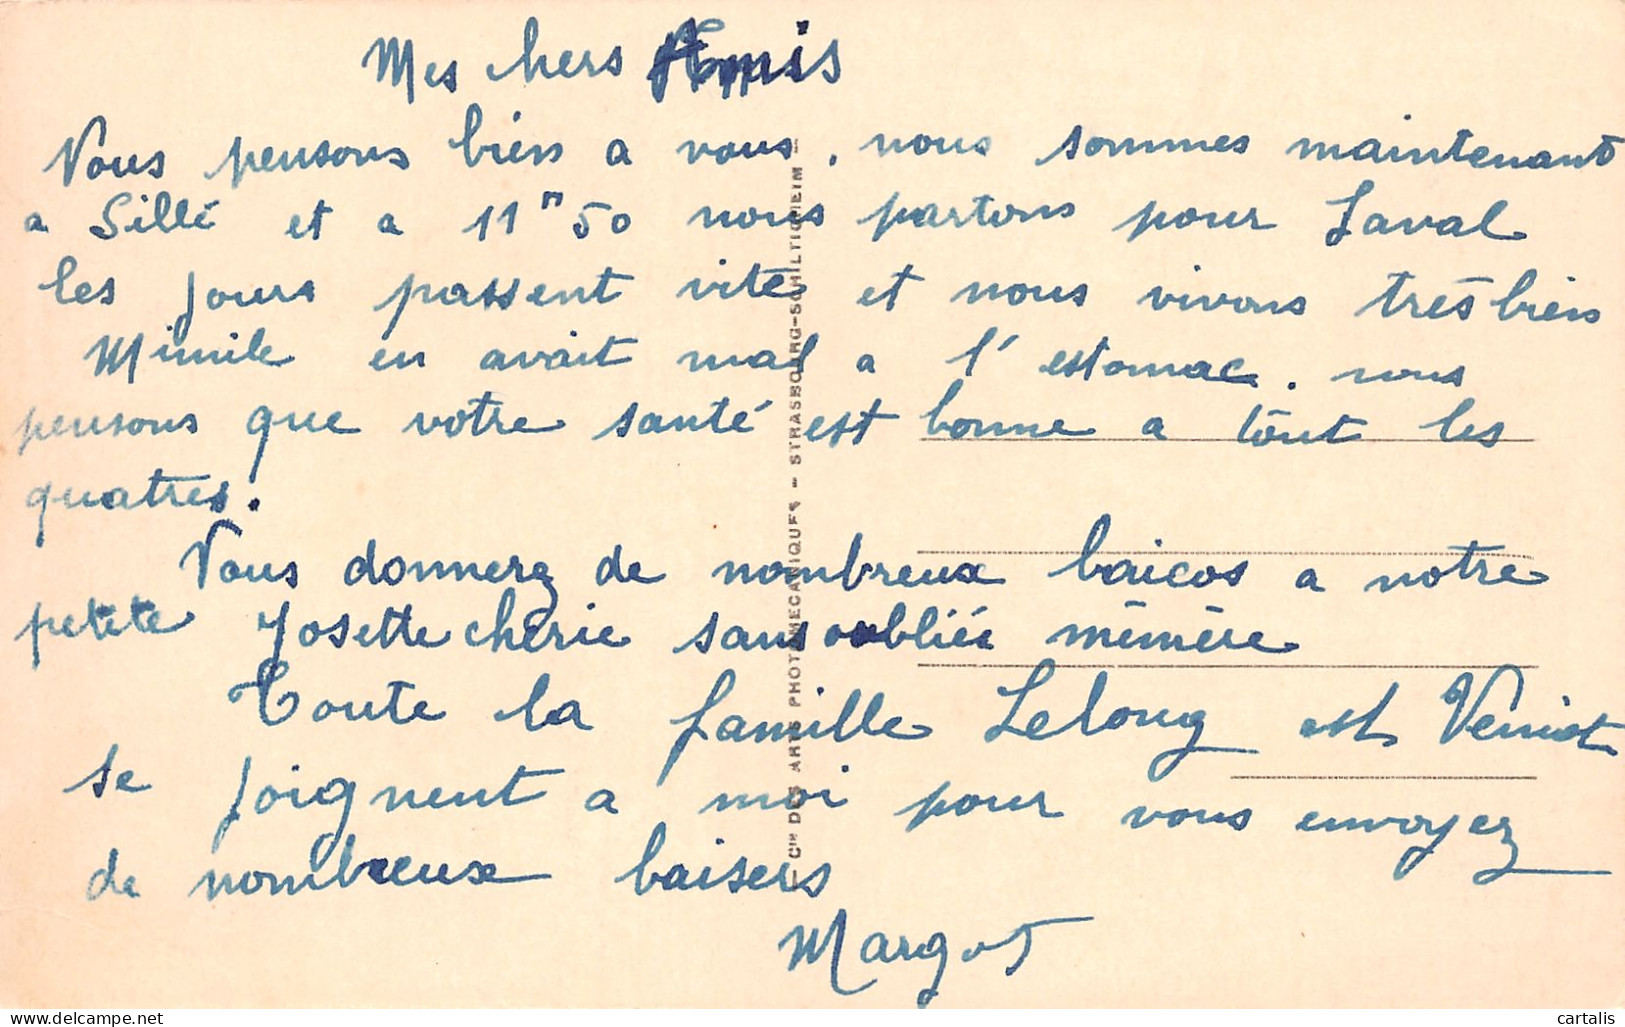 Mes chers Amis
Nous pensons bien a vous. nous sommes maintenant
a Sillé et a 11 h 50 nous partons pour Laval
les jours passent vite et nous vivons très bien
Mimile en avait mal a l'estomac. nous
pensons que votre santé est bonne a tout les
quatres.
Vous donnerez de nombreux baicos a notre
petite Josette cherie sans oubliée mémère
Toute la famille Lelong est Veniot
se joignent a moi pour vous envoyez
de nombreux baisers
Margot
Cie DES ARTS PHOTOMECANIQUES - STRASBOURG-SCHILTIGHEIM -
www.delcampe.net
cartalis